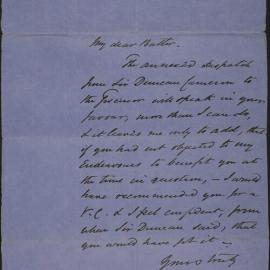 My dear Battler.
The annexed despatch
from Sir Duncan Cameron to
the Governor will speak in your
favour, more than I can do,
& it leaves me only to add, that
if you had not objected to my
Endeavours to benefit you at
the time in question, – I would
have recommended you for a
V.C. & I feel confident, from
what Sir Duncan said, that
you would have got it –
Yours truly